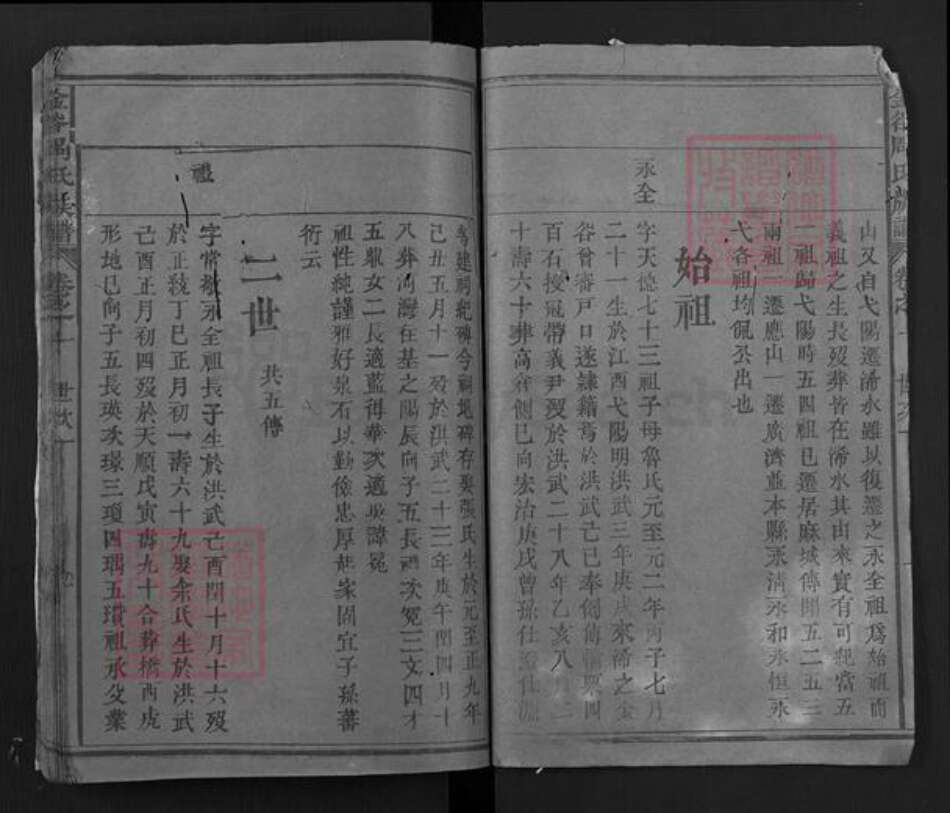 山又自弋陽遷浠永雖以復遷之永全祖爲始祖而
義祖之生長歿葬皆在浠水其由來實有可杞當五
二祖歸弋陽時五四祖已遷居麻城傳聞五二五三
兩祖一遷應山一遷廣濟並本縣永清永和永恒永
弋各祖均佩公出也
始祖
永全
字天德七十三祖子母魯氏元至元二年丙子七月
二十一生於江西弋陽明洪武三年庚戌來浠之金
谷曾審戸口遂隸籍焉於洪武己巳奉例 輸粟四
百石授冠帶義尹歿於洪武二十八年乙亥八月二
十壽六十葬高 側巳向宏治庚戌曾孫仕 仕源
建祠紀碑今祠地碑存娶張氏生於元至正九年
己丑五月十一歿於洪武二十三年庚午閏四月十
八葬河灣在基之陽辰向子五長禮次冕三文四才
五 女二長適藍得華次適 冕
祖性純謹雅好泉石以勤儉忠厚起家固宜子孫蕃
衍云
二世 共五傳
禮
字常 永全祖長子生於洪武己酉閏十月十六歿
於正統丁巳正月初一壽六十九娶余氏生於洪武
己酉正月初四歿於天順戊寅壽九十合葬橋西虎
形地巳向子五長瑛次璟三瓊四瑀五瓚祖承父業
金谷周氏族譜 卷之 十 世 一